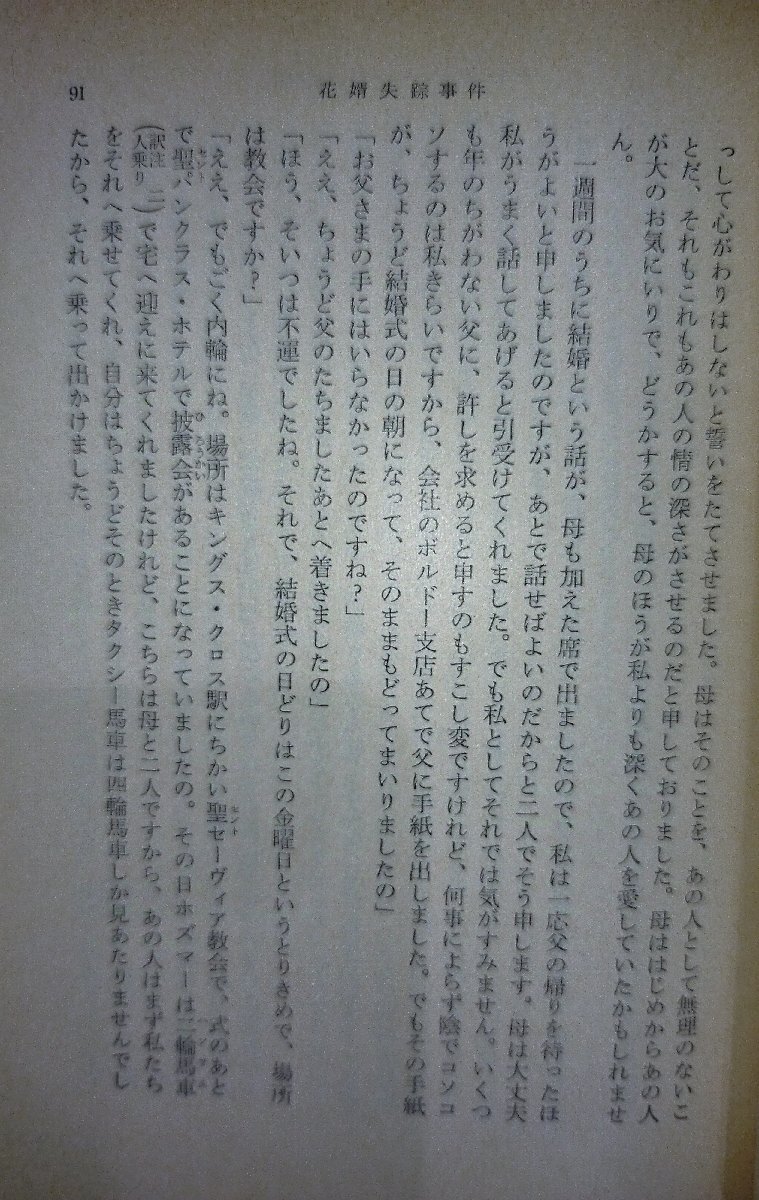 91
花婿失踪事件
っして心がわりはしないと誓いをたてさせました。母はそのことを、あの人として無理のないこ
とだ、それもこれもあの人の情の深さがさせるのだと申しておりました。母ははじめからあの人
が大のお気にいりで、どうかすると、母のほうが私よりも深くあの人を愛していたかもしれませ
ん。
一週間のうちに結婚という話が、母も加えた席で出ましたので、私は一応父の帰りを待ったほ
うがよいと申しましたのですが、あとで話せばよいのだからと二人でそう申します。母は大丈夫
私がうまく話してあげると引受けてくれました。でも私としてそれでは気がすみません。いくつ
も年のちがわない父に、許しを求めると申すのもすこし変ですけれど、何事によらず陰でコソコ
ソするのは私きらいですから、会社のボルドー支店あてで父に手紙を出しました。でもその手紙
が、ちょうど結婚式の日の朝になって、そのままもどってまいりましたの」
「お父さまの手にはいらなかったのですね？」
「ええ、ちょうど父のたちましたあとへ着きましたの」
「ほう、そいつは不運でしたね。それで、結婚式の日どりはこの金曜日というとりきめで、場所
は教会ですか？」
「ええ、でもごく内輪にね。場所はキングス・クロス駅にちかい聖セーヴィア教会で、式のあと
で聖パンクラス・ホテルで披露会があることになっていましたの。その日ホズマーは二輪馬車
（訳注 二人乗り）で宅へ迎えに来てくれましたけれど、こちらは母と二人ですから、あの人はまず私たち
をそれへ乗せてくれ、自分はちょうどそのときタクシー馬車は四輪馬車しか見あたりませんでし
たから、それへ乗って出かけました。